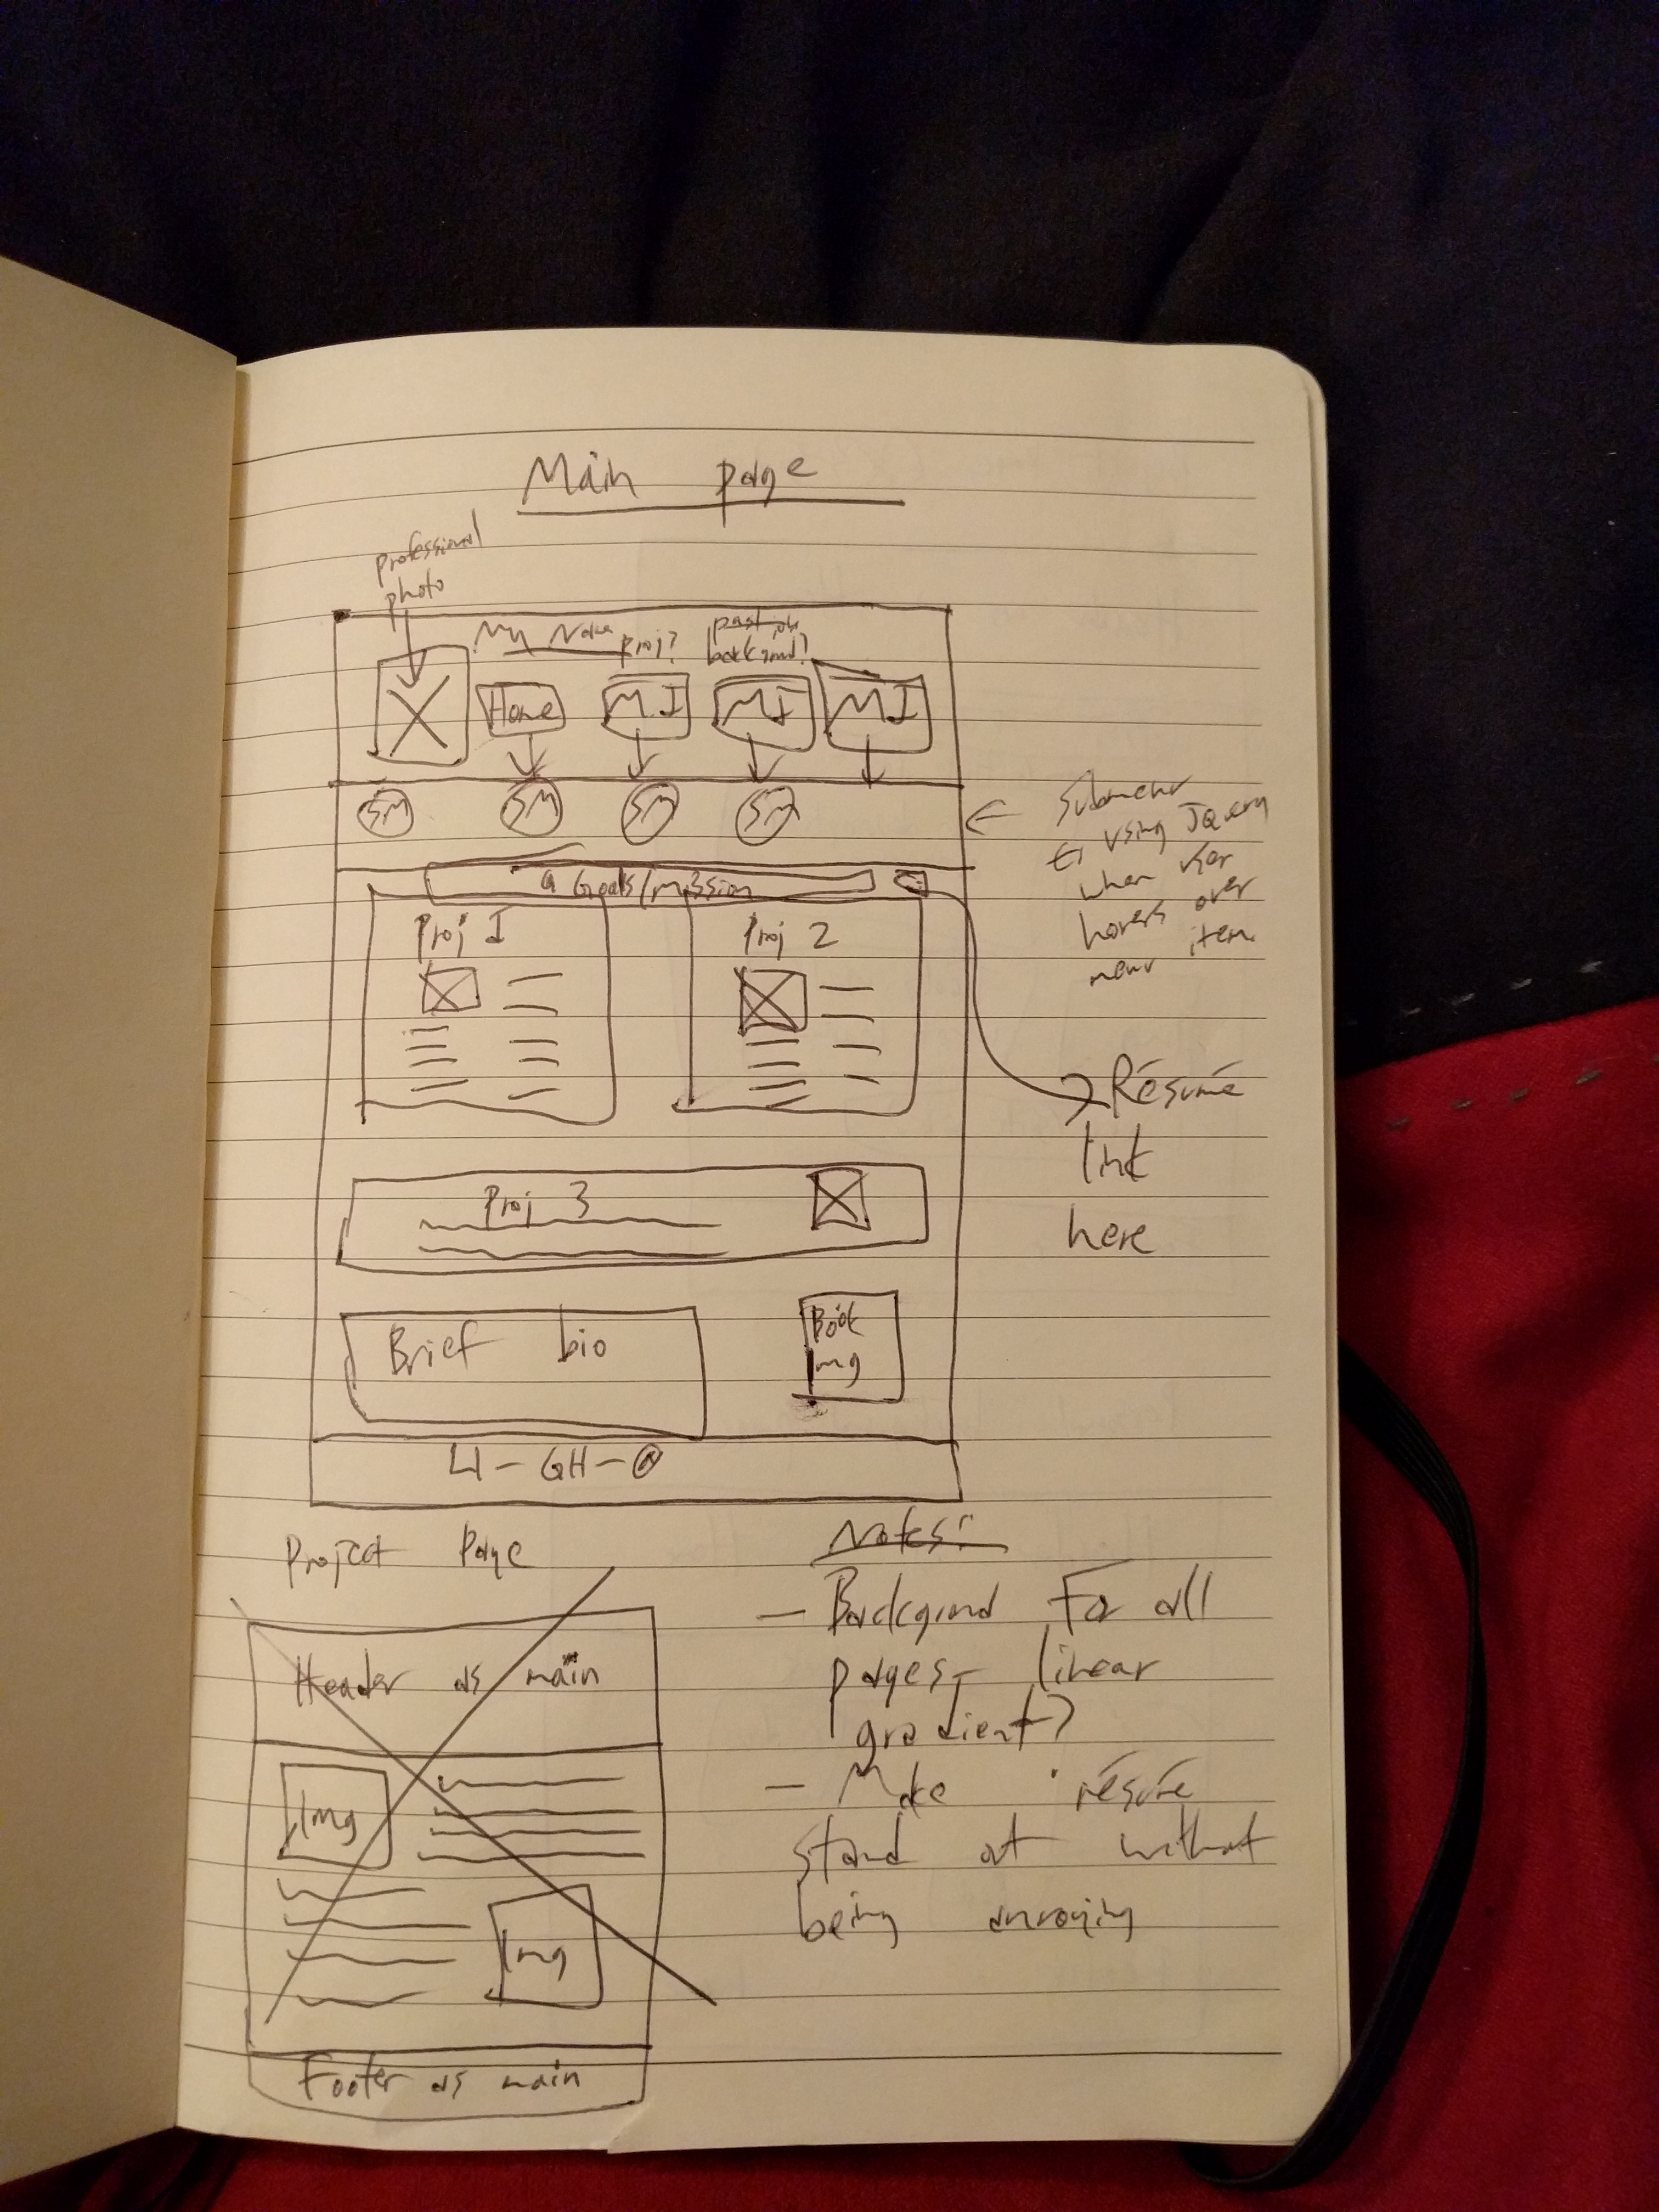 Main page
professional
photo
My Name
proj?
past job
background?
Home
MI
MI
MI
SM
SM
SM
SM
Submenu
using JQuery
when user
hovers over
menu item
Goals/mission
Proj 1
Proj 2
Résumé
link
here
Proj 3
Brief bio
Book
img
LI - GH - @
Project Page
Header as main
Img
Img
Footer as main
Notes:
- Background For all
pages - linear
gradient?
- Make résumé
stand out without
being annoying